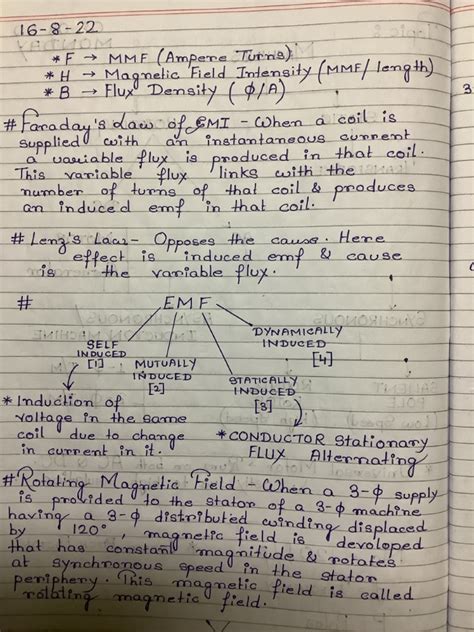 16-8-22
* F → MMF (Ampere Turns)
* H → Magnetic Field Intensity (MMF/length)
* B → Flux Density (Φ/A)
# Faraday's Law of EMI - When a coil is
supplied with an instantaneous current
a variable flux is produced in that coil.
This variable flux links with the
number of turns of that coil & produces
an induced emf in that coil.
# Lenz's Law - Opposes the cause. Here
effect is induced emf & cause
is the variable flux.
# EMF
SELF
INDUCED
[1]
MUTUALLY
INDUCED
[2]
STATICALLY
INDUCED
[3]
DYNAMICALLY
INDUCED
[4]
* Induction of
voltage in the same
coil due to change
in current in it.
* CONDUCTOR Stationary
FLUX Alternating
# Rotating Magnetic Field - When a 3-Φ supply
is provided to the stator of a 3-Φ machine
having a 3-Φ distributed winding displaced
by 120°, magnetic field is devoloped
that has constant magnitude & rotates
at synchronous speed in the stator
periphery. This magnetic field is called
rotating magnetic field.